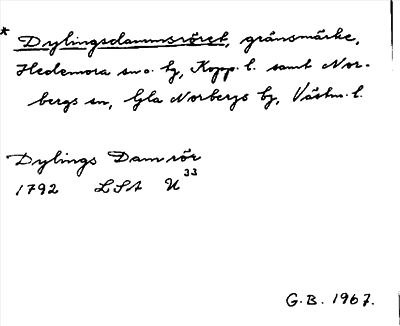 * Dylingsdammsröret, gränsmärke,
Hedemora sn o. bg, Kopp. l. samt Nor-
bergs sn, Gla Norbergs bg, Västm. l.
Dylings Dam rör
1792 LSA U 33
G.B. 1967.